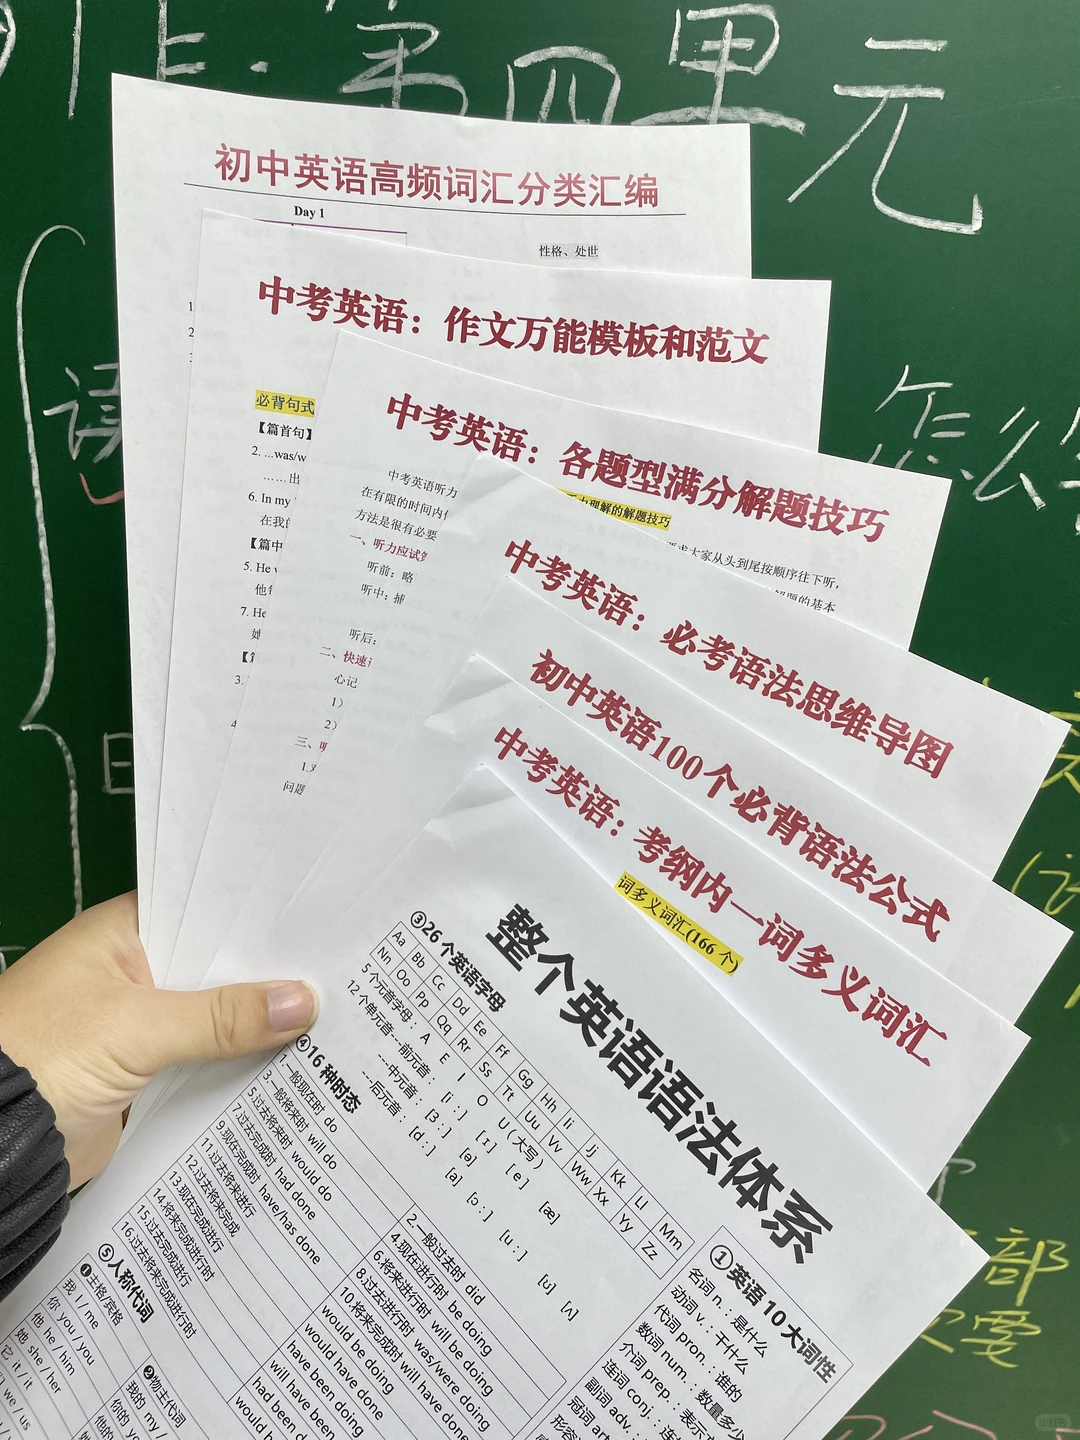 上.第四单元
读
怎么
日
部
要
初中英语高频词汇分类汇编
Day 1
性格、处世
1
2
中考英语：作文万能模板和范文
必背句式
【篇首句】
2. ...was/w
……出
6. In my
在我
【篇中
5. He
他
7. He
她
3.
4
中考英语：各题型满分解题技巧
力理解的解题技巧
中考英语听力
在有限的时间内
方法是很有必要
要求大家从头到尾按顺序往下听，
解题的基本
一、听力应试
听前：略
听中：捕
听后：
二、快速
心记
1）
2）
三、听
1.
问题
中考英语：必考语法思维导图
初中英语100个必背语法公式
中考英语：考纲内一词多义词汇
词多义词汇(166 个)
整个英语语法体系
③26 个英语字母
Aa Bb Cc Dd Ee Ff Gg Hh Ii Jj Kk Ll Mm
Nn Oo Pp Qq Rr Ss Tt Uu Vv Ww Xx Yy Zz
5 个元音字母： A E I O U（大写）
12 个单元音---前元音： [i：] [ɪ] [e] [æ]
---中元音： [ɜ：] [ə] [ʌ]
---后元音：
④16 种时态
1.一般现在时 do
2.一般过去时 did
3.一般将来时 will do
4.现在进行时 be doing
5.过去将来时 would do
6.将来进行时 will be doing
7.过去完成时 had done
8.过去进行时 was/were doing
9.现在完成时 have/has done
10.将来完成时 will have done
11.过去将来进行 would be doing
12.过去将来完成 would have done
13.现在完成进行时 have been doing
14.将来完成进行 will have been doing
15.过去完成进行 had been d
16.过去将来完成进行时 would h
⑤人称代词
❶主格/宾格
我 I / me
你 you / you
他 he / him
她 she / her
它 it / it
we / us
❷物主代词
我的 my /
你的
他的
①英语 10 大词性
名词 n.：是什么
动词 v.：干什么
代词 pron.：谁的
数词 num.：数量多少
介词 prep.：表示方
连词 conj.：连
副词 adv.
冠词 art
形容
小红书